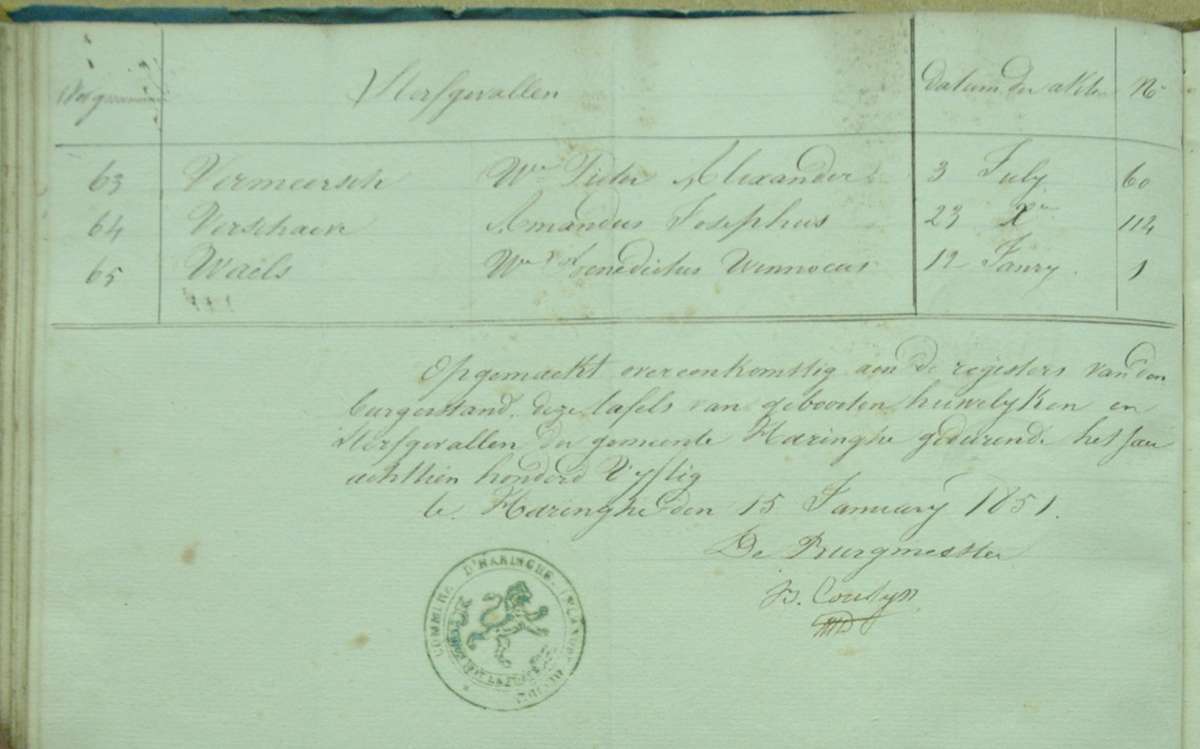 Sterfgevallen datum der akten No
63 Vermeersch Wm Pieter Alexander 3 July 60
64 Verschaeve Amandus Josephus 23 Xer 114
65 Waels Benedictus Winnocus 12 Janry 1
Opgemaekt overeenkomstig aen de registers van den
burgerstand, deze tafels van geboorten, huwelyken en
sterfgevallen der gemeente Haringhe gedurende het jaer
achttien honderd vyftig
te Haringhe den 15 January 1851.
De Burgmeester
COMMUNE D'HARINGHE